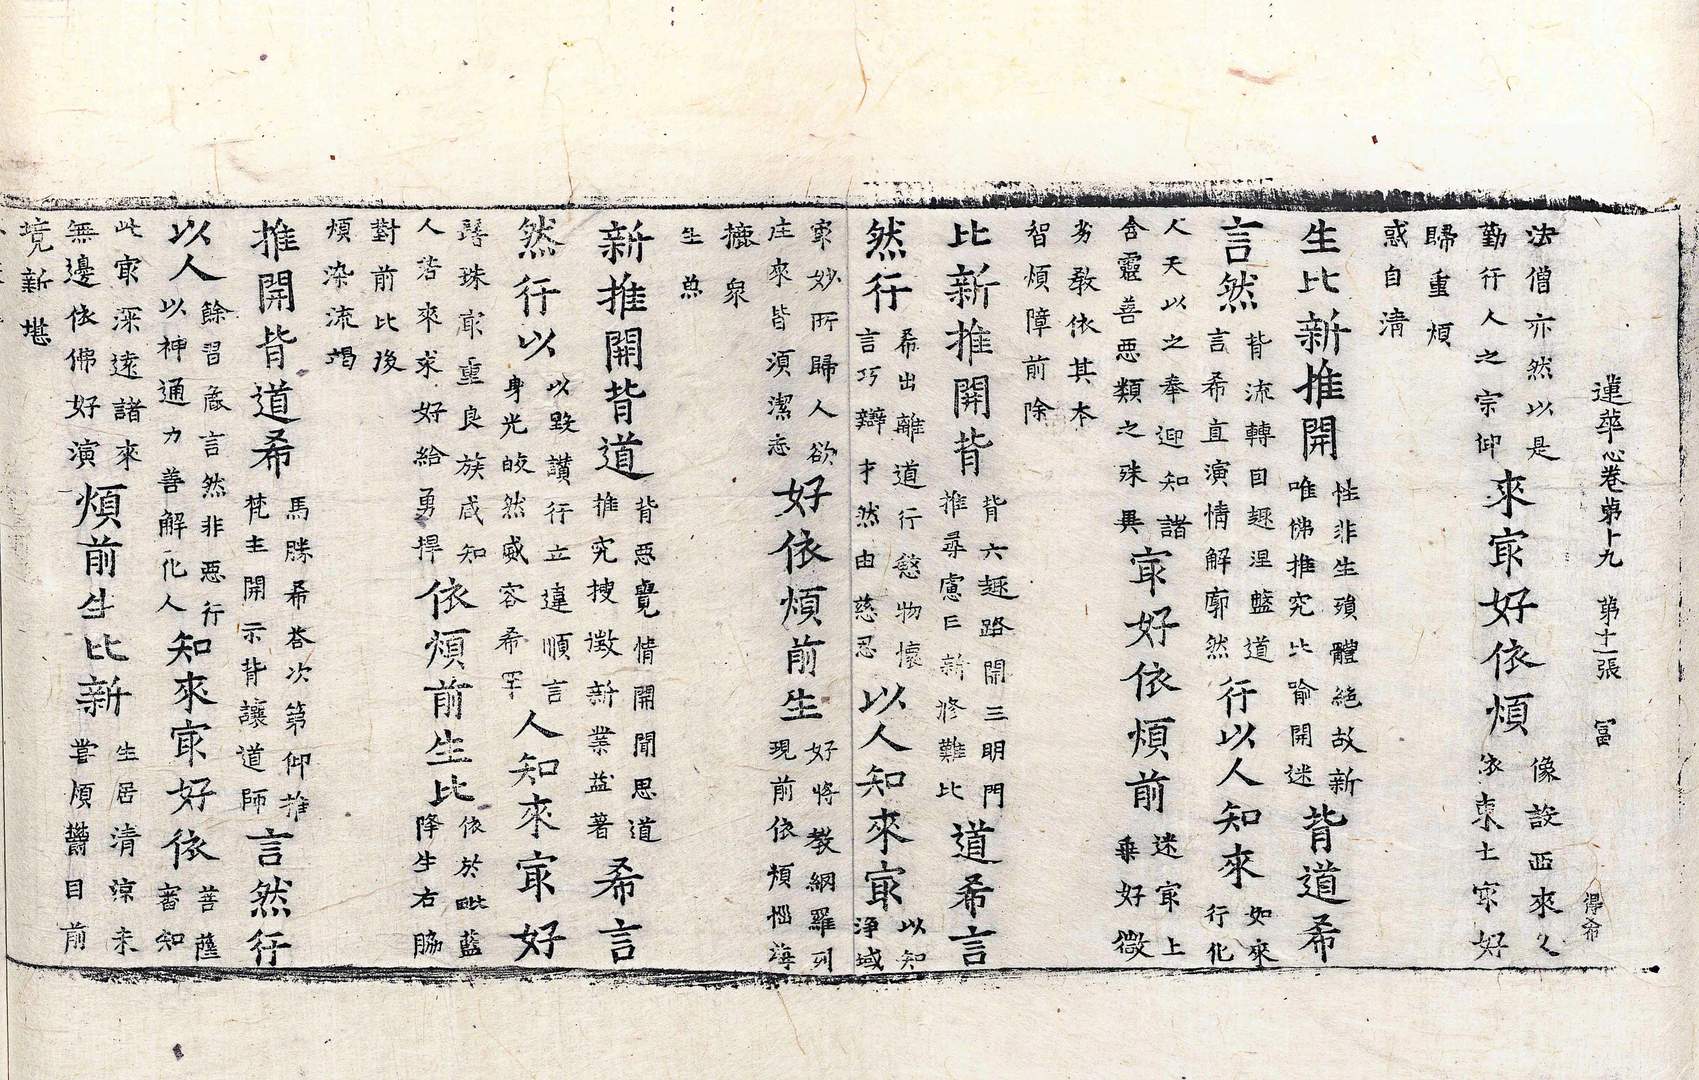 蓮華心卷第十九 第十一張 冨 得希
法僧亦然以是
勤行人之宗仰
來㝡好依煩
像設西來久
依東土㝡好
歸重煩
惑自清
生比新推開
性非生殞體絶故新
唯佛推究比喻開迷
背道希
言然
背流轉目趣涅盤道
言希直演情解廓然
行以人知來
如來
行化
人天以之奉迎知諸
含靈善惡類之殊異
㝡好依煩前
迷㝡上
乗好徴
劣教依其本
智煩障前除
比新推開背
背六趣路開三明門
推尋慮巳新修難比
道希言
然行
希出離道行慜物懷
言巧辯才然由慈忍
以人知來㝡
以知
淨域
㝡妙所歸人欲
庄來皆湏潔志
好依煩前生
好將教網羅列
現前依煩惱海
摝衆
生魚
新推開背道
背惡覺情開聞思道
推究搜徵新業益著
希言
然行以
以毀讃行立違順言
身光皎然威容希罕
人知來㝡好
髻珠㝡重良族咸知
人若來求好給勇捍
依煩前生比
依於毗藍
降生右脇
對前比後
煩染流竭
推開背道希
馬勝希荅次第仰推
梵主開示背讓道師
言然行
以人
餘習麁言然非惡行
以神通力善解化人
知來㝡好依
菩薩
審知
此㝡深遠諸來
無邊依佛好演
煩前生比新
生居清凉未
嘗煩欝目前
境新堪